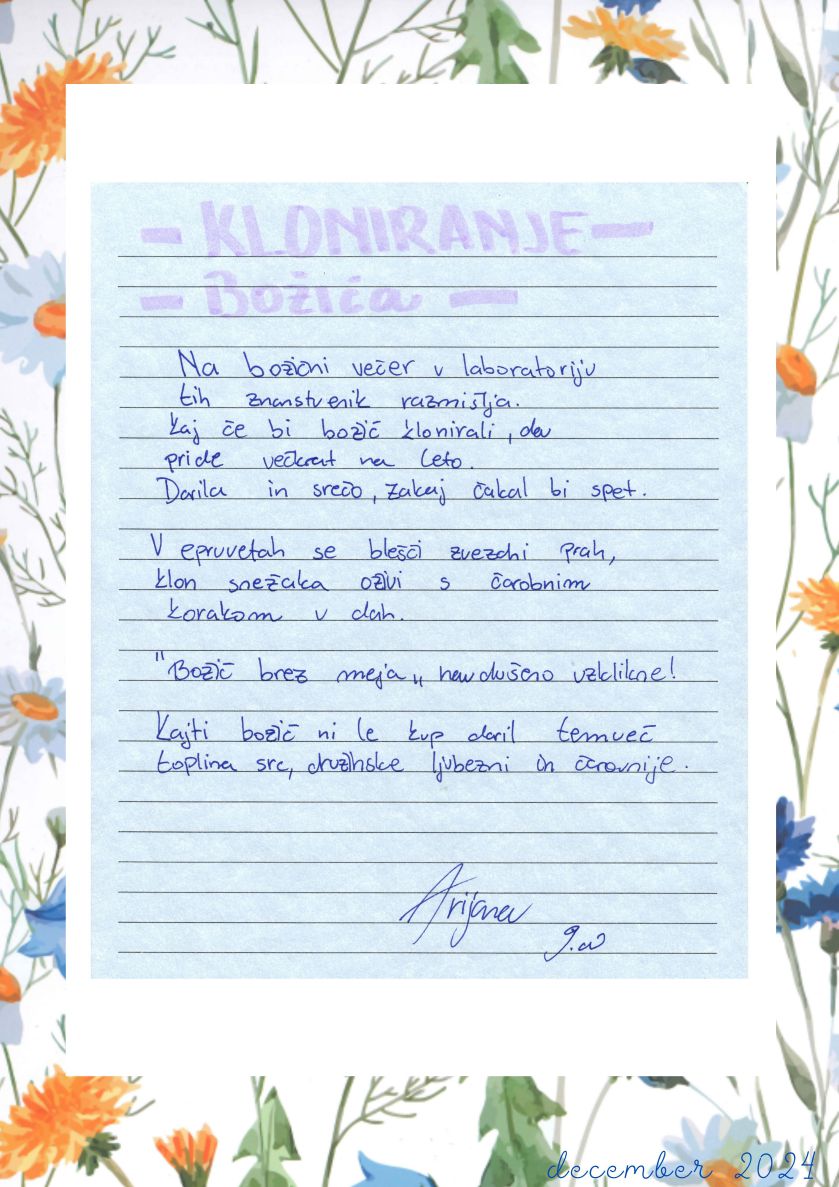 - KLONIRANJE -
- Božiča -
Na božični večer v laboratoriju
tih znanstvenik razmišlja.
Kaj če bi božič klonirali, da
pride večkrat na leto.
Darila in srečo, zakaj čakal bi spet.
V epruvetah se blešči zvezdni prah,
klon snežaka oživi s čarobnim
korakom v dah.
"Božič brez meja„ navdušeno vzklikne!
Kajti božič ni le kup daril temveč
toplina src, družinske ljubezni in čarovnije.
Arijana
9.a
december 2024